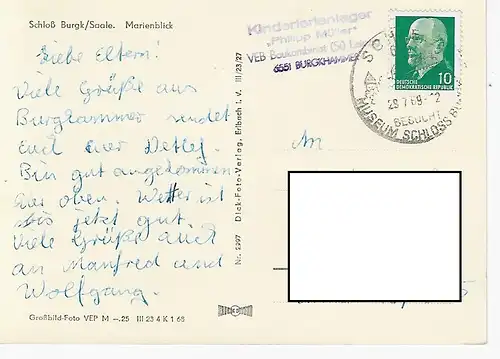 Schloß Burgk/Saale. Marienblick
Liebe Eltern!
Viele Grüße aus
Burghammer sendet
euch euer Detlef.
Bin gut angekommen
hier oben. Wetter ist
bis jetzt gut.
Viele Grüße auch
an Manfred und
Wolfgang.
Großbild-Foto VEP M –.25 III 23 4 K 1 68
Nr. 2397 Dick-Foto-Verlag, Erlbach i. V. III/23/27
Kinderferienlager
„Philipp Müller"
VEB Baukombinat
6551 BURGKHAMMER
10
DEUTSCHE
DEMOKRATISCHE REPUBLIK
28.7.69-12
BESUCHT
MUSEUM SCHLOSS
An